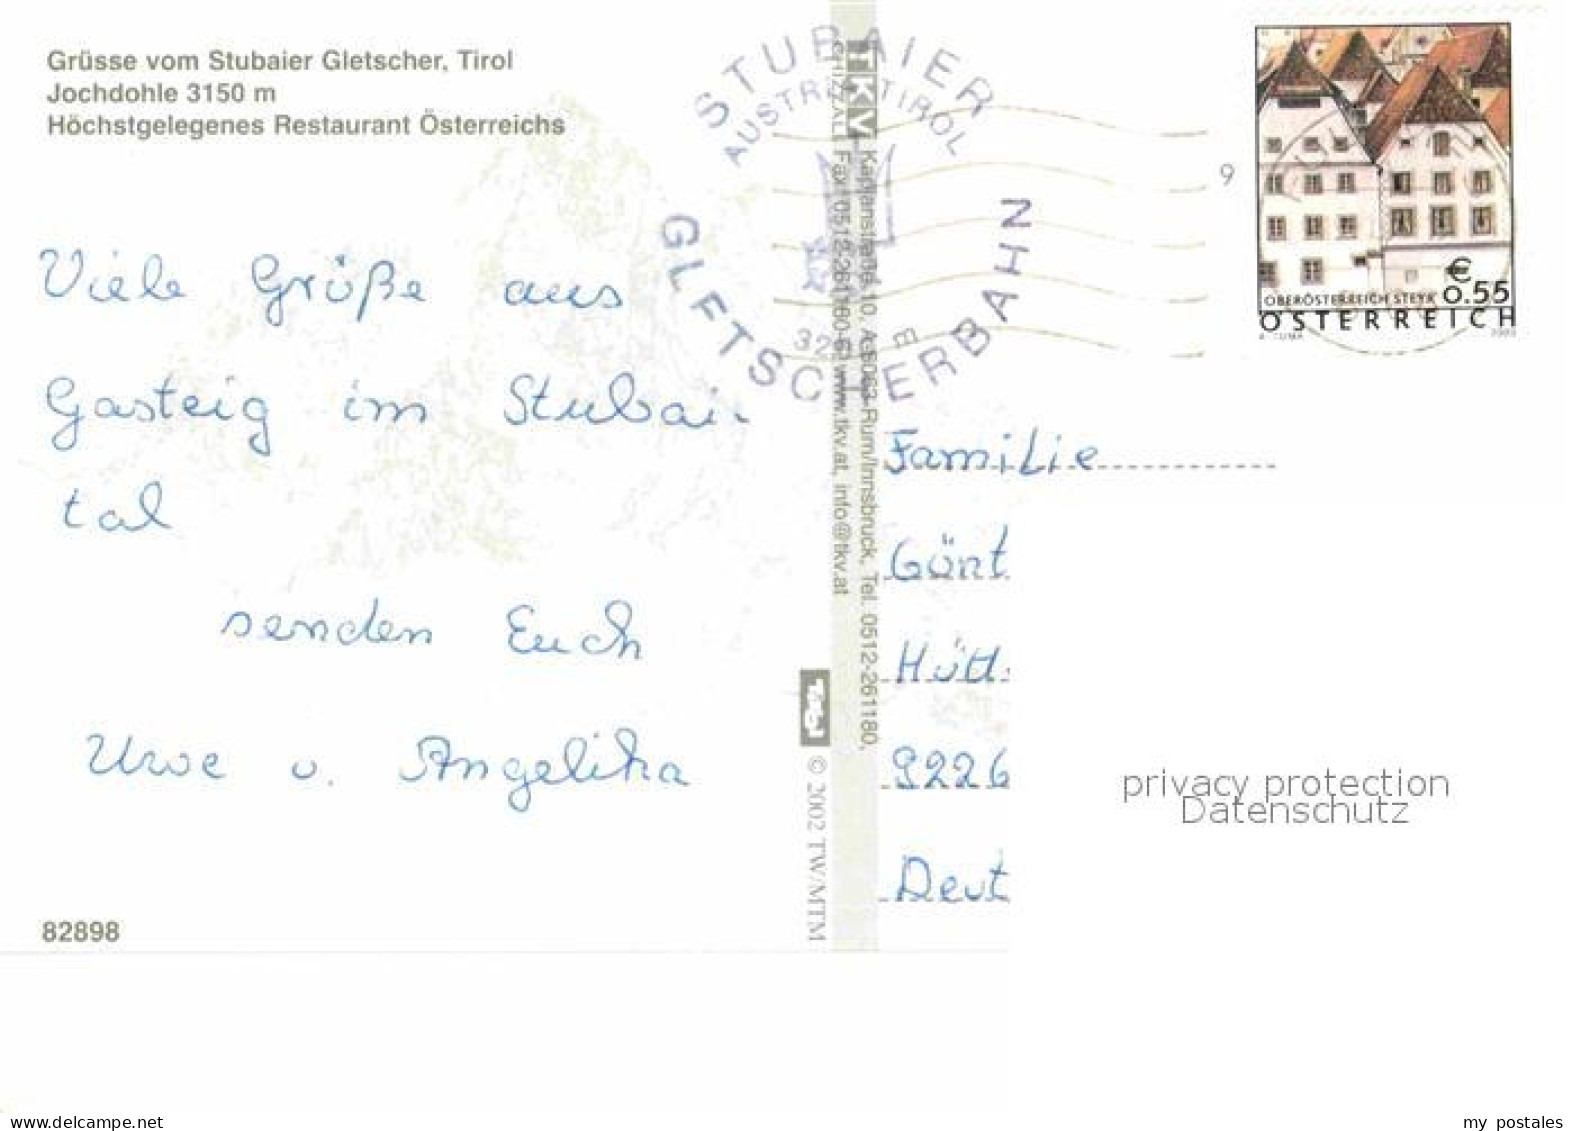 Grüsse vom Stubaier Gletscher, Tirol
Jochdohle 3150 m
Höchstgelegenes Restaurant Österreichs
Viele Grüße aus
Gasteig im Stubai-
tal
senden Euch
Uwe u. Angelika
82898
STUBAIER
AUSTRIA TIROL
GLETSCHERBAHN
TKV
Kaplanstraße 10, A-6063 Rum/Innsbruck, Tel. 0512-261180,
www.tkv.at, info@tkv.at
Tirol
© 2002 TW/MTM
9
€
0.55
OBERÖSTERREICH STEYR
ÖSTERREICH
Familie
Günt
Hütt
9226
Deut
privacy protection
Datenschutz
www.delcampe.net
my_postales